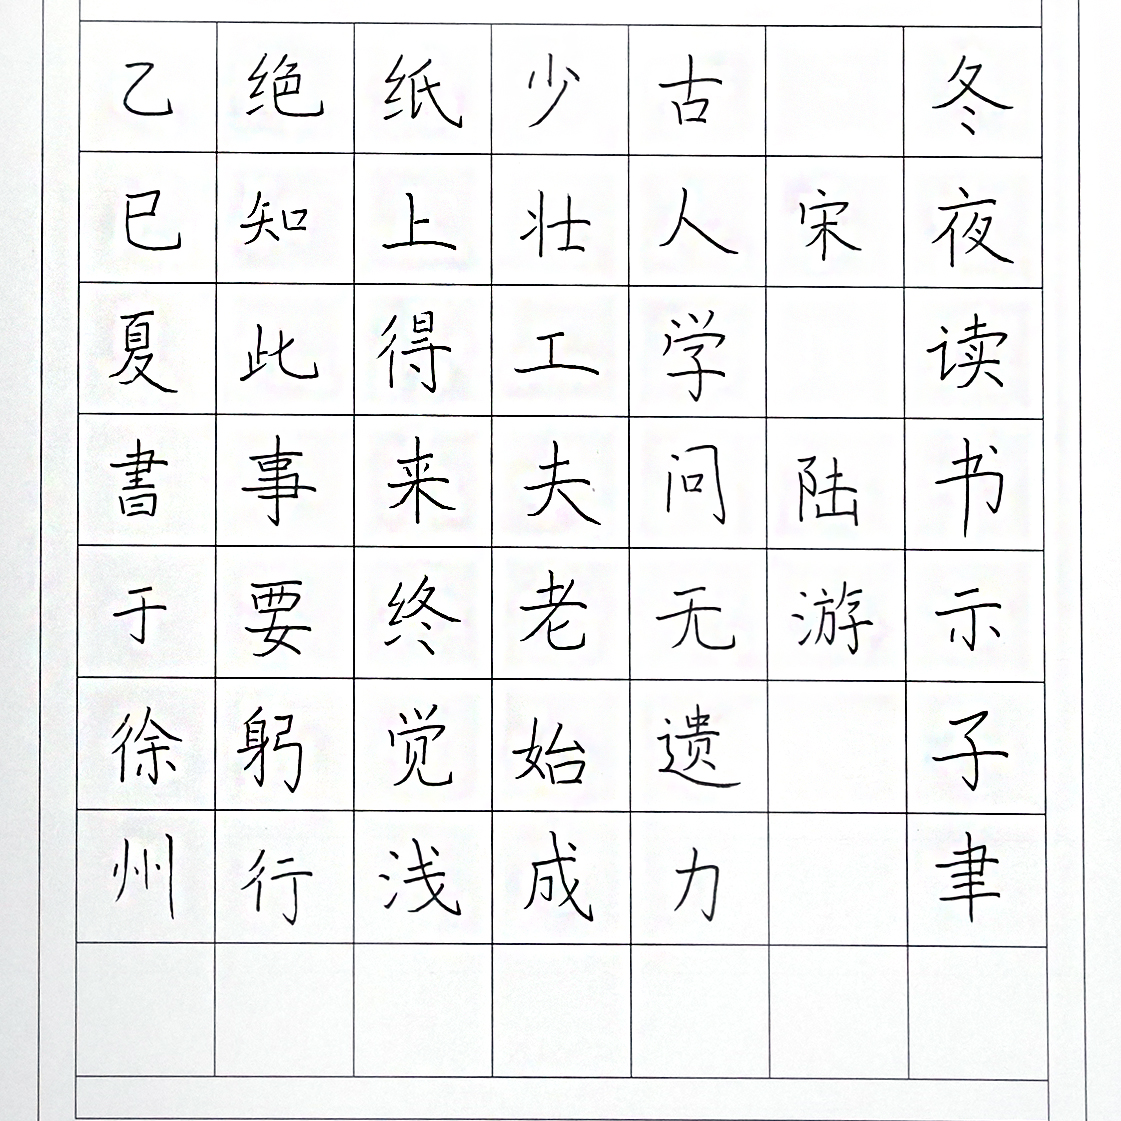 冬夜读书示子聿
宋 陆游
古人学问无遗力
少壮工夫老始成
纸上得来终觉浅
绝知此事要躬行
乙巳夏書于徐州